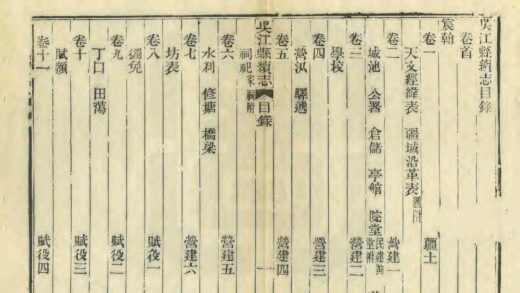 吳江縣續志目錄
卷首
宸翰
卷一 疆土
天文經緯表 疆域沿革表圖附
卷二 營建一
城池 公署 倉儲 亭館 院堂民建善堂附
卷三 營建二
學校
卷四 營建三
營汛 驛遞
卷五 營建四
吳江縣續志 目錄 一
祠祀家祠附
卷六 營建五
水利 修塘 橋梁
卷七 營建六
坊表
卷八 賦役一
蠲免
卷九 賦役二
丁口 田蕩
卷十 賦役三
賦額
卷十一 賦役四